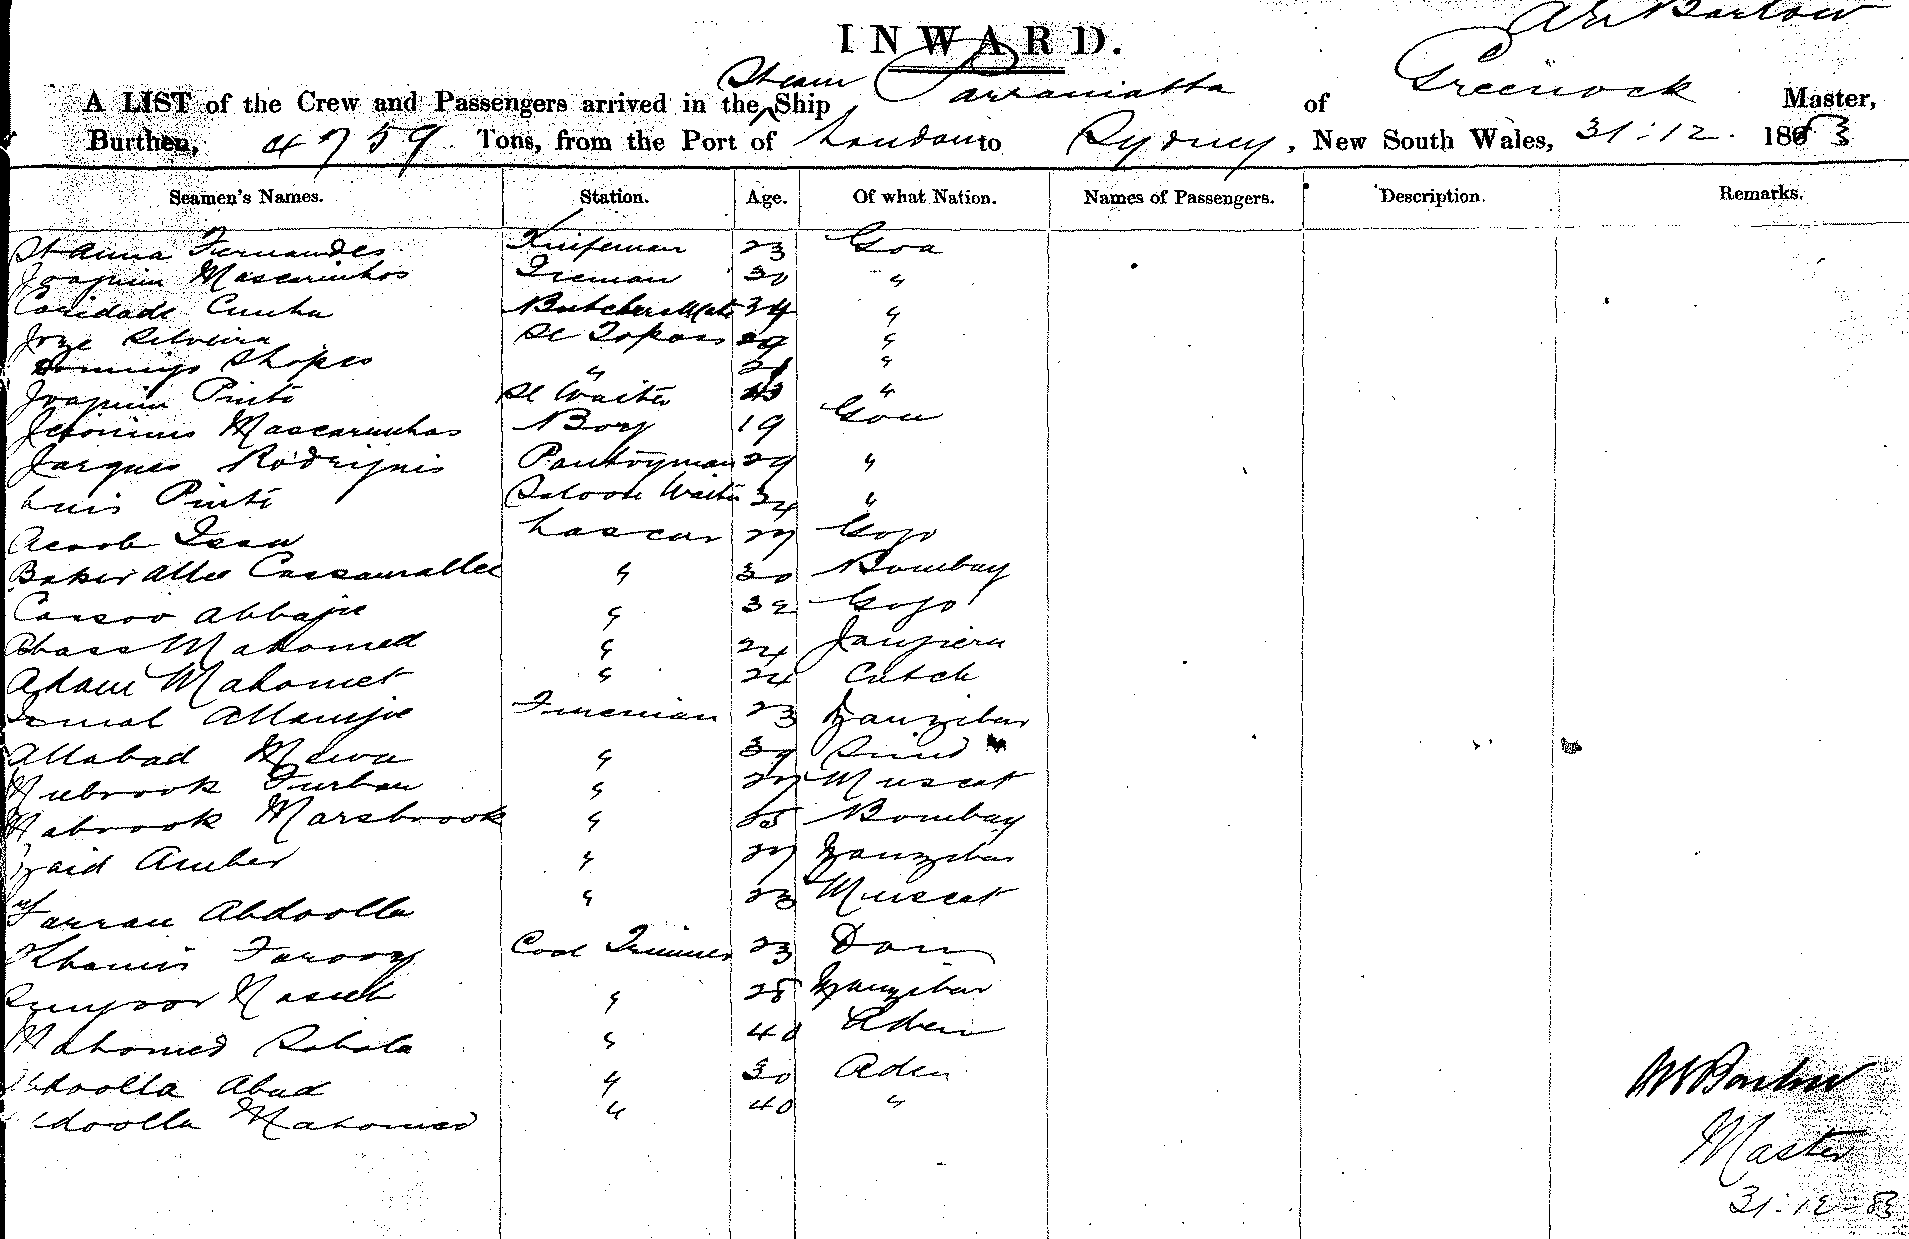 INWARD.
Barlow
A LIST of the Crew and Passengers arrived in the Steam Ship Parramatta of Greenock Master,
Burthen, 4759 Tons, from the Port of London to Sydney, New South Wales, 31.12. 1883
Seamen's Names. Station. Age. Of what Nation. Names of Passengers. Description. Remarks.
St Anna Fernandes Knifeman 23 Goa
Joaquim Mascarinhos 30 "
Caridade Cunha Butchers Mate 34 "
Joze Silveira Topass 29 "
Domingo Shopes " "
Joaquim Pinto Waiter 43 "
Jeronimo Mascarenhas Boy 19 Goa
Jarques Rodrignis Pantryman 29 "
Luis Pinto Saloon Waiter 34 "
Acoob Issa Lascar 27 Gogo
Baker Allee Cassamallee " 30 Bombay
Cassoo Abbajie " 32 Gogo
Abass Mahomed " 24 Janjiera
Adam Mahomet " 24 Cutch
Ismal Allanjie Fireman 23 Zanzibar
Allabad Mewa " 39 Sind
Mubrook Furban " 27 Muscat
Mabrook Marsbrook " 55 Bombay
Zaid Amber " 27 Zanzibar
Farran Abdoolla " 23 Muscat
Khamis Farooz Coal Trimmer 23
Nasieb " 28 Zanzibar
Mahomed " 40 Aden
Abdoolla Abad " 30 Aden
Abdoolla Mahomed " 40 "
Barlow
Master
31-12-83